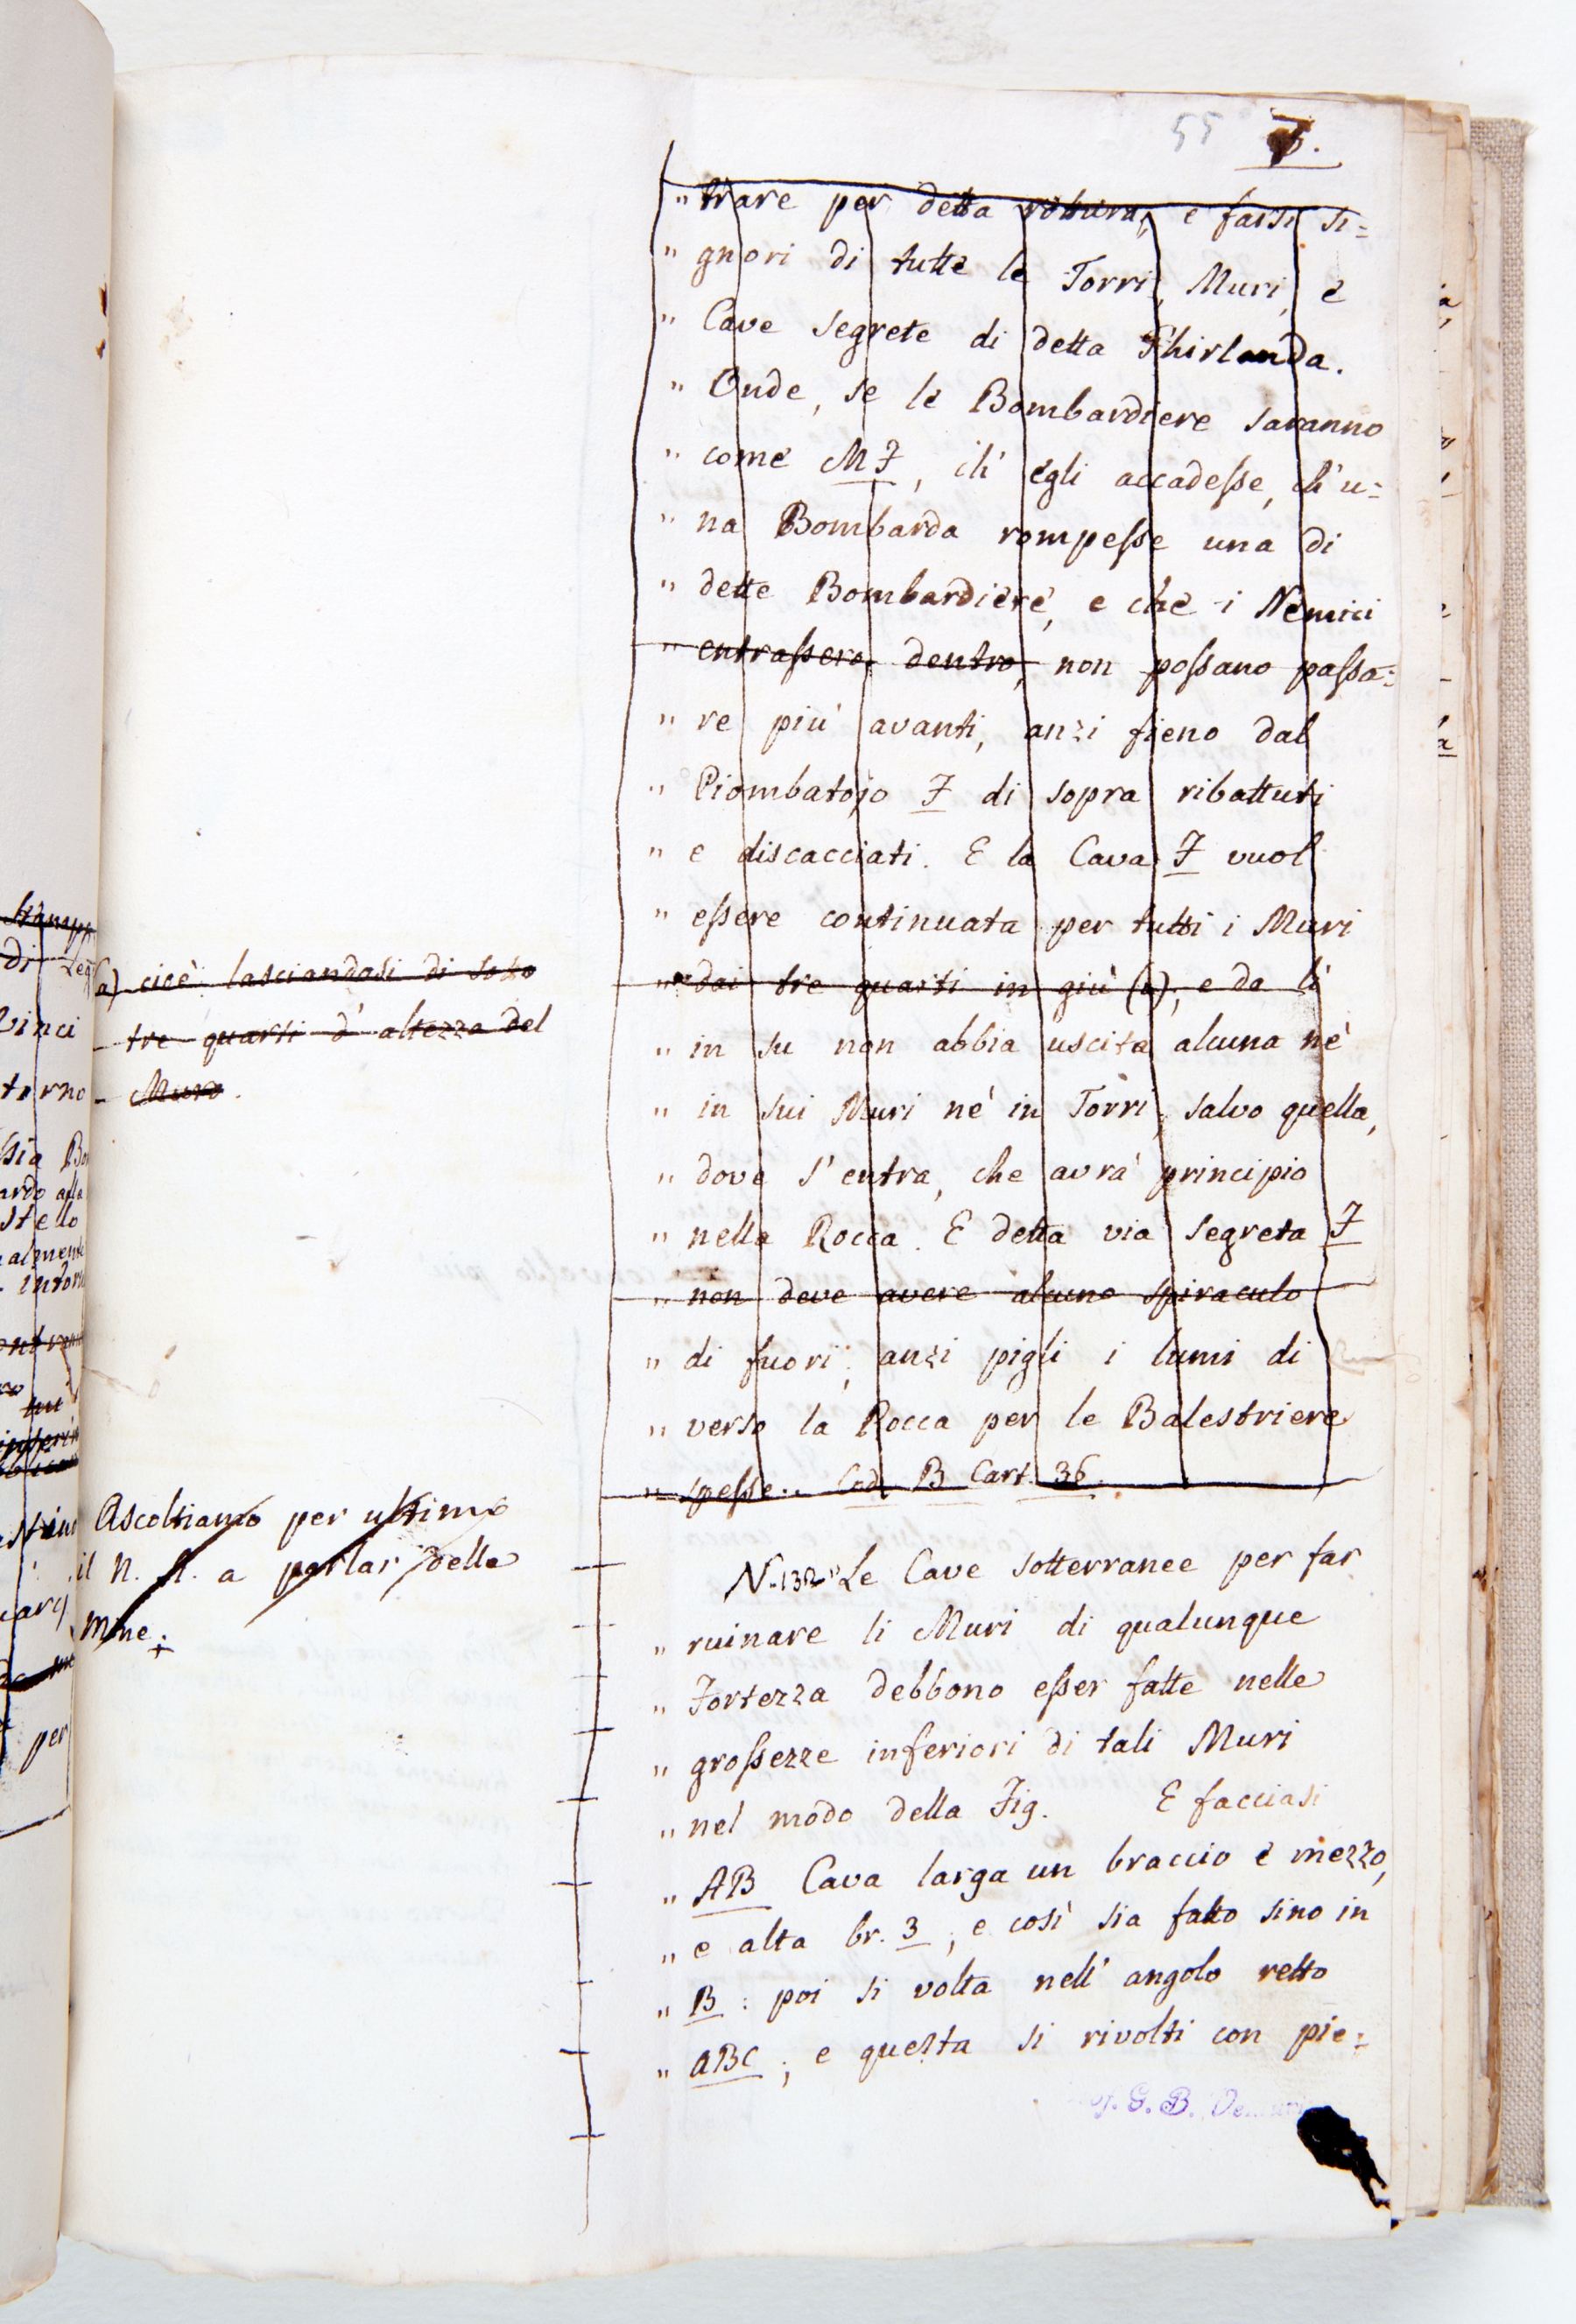 55 7.
" trare per detta rottura, e farsi si=
" gnori di tutte le Torri, Muri, e
" Cave segrete di detta Ghirlanda.
" Onde, se le Bombardiere saranno
" come MF, ch' egli accadesse, ch' u=
" na Bombarda rompesse una di
" dette Bombardiere, e che i Nemici
" entrassero dentro, non possano passa=
" re più avanti, anzi fieno dal
" Piombatojo F di sopra ribattuti
" e discacciati. E la Cava F vuol
" essere continuata per tutti i Muri
" dai tre quarti in giù (a), e da lì
" in su non abbia uscita alcuna nè
" in sui Muri nè in Torri, salvo quella,
" dove s' entra, che avrà principio
" nella Rocca. E detta via segreta F
" non deve avere alcuno spiraculo
" di fuori, anzi pigli i lumi di
" verso la Rocca per le Balestriere
" spesse.. Cod. B Cart. 36.
N. 132 " Le Cave sotterranee per far
" ruinare li Muri di qualunque
" Fortezza debbono esser fatte nelle
" grossezze inferiori di tali Muri
" nel modo della Fig. E facciasi
" AB Cava larga un braccio e mezzo,
" e alta br. 3, e così sia fatto sino in
" B : poi si volta nell' angolo retto
" ABC ; e questa si rivolti con pie=
(a) cioè lasciandosi di sotto
tre quarti d' altezza del
Muro.
Ascoltiamo per ultimo
il N. A. a parlar delle
Mine.
G. B.